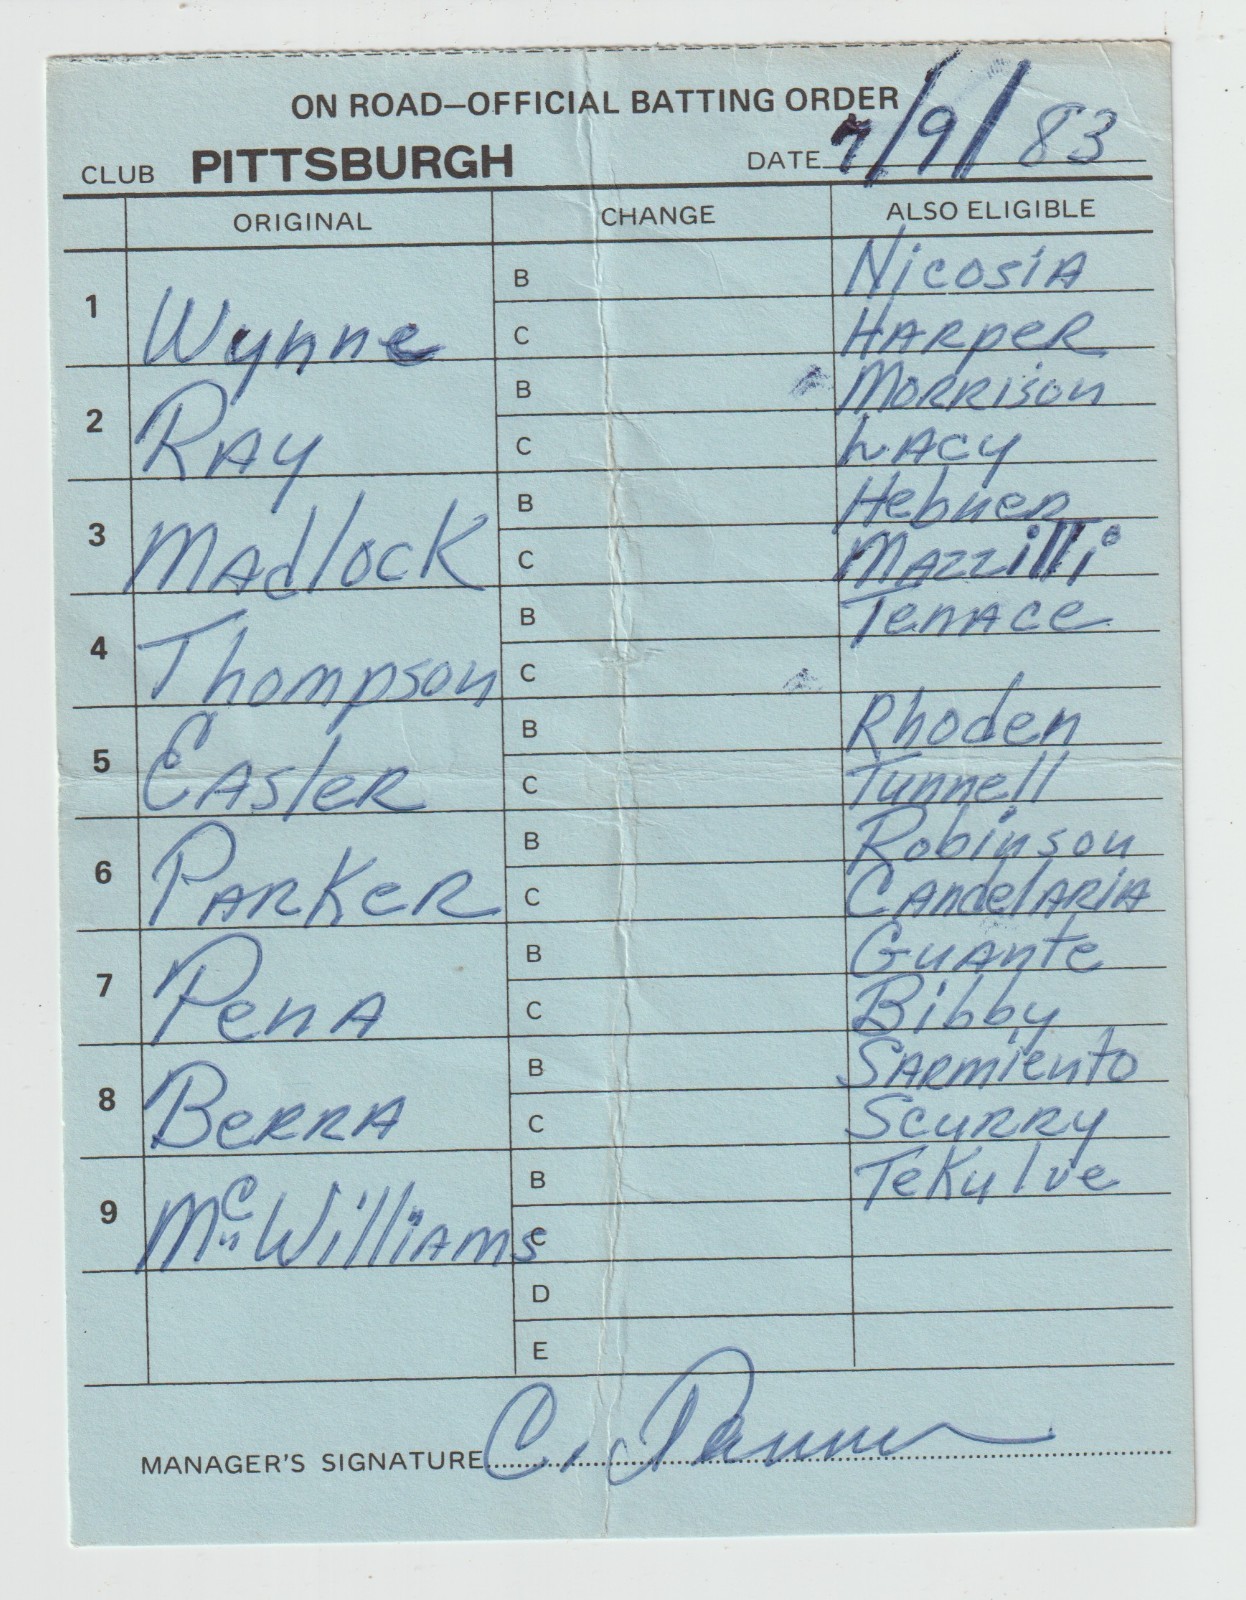 ON ROAD—OFFICIAL BATTING ORDER
CLUB PITTSBURGH DATE 7/9/83
ORIGINAL CHANGE ALSO ELIGIBLE
1 Wynne B Nicosia
C Harper
2 Ray B Morrison
C Lacy
3 Madlock B Hebner
C Mazzilli
4 Thompson B Tenace
C
5 Easler B Rhoden
C Tunnell
6 Parker B Robinson
C Candelaria
7 Pena B Guante
C Bibby
8 Berra B Sarmiento
C Scurry
9 McWilliams B Tekulve
C
D
E
MANAGER'S SIGNATURE C. Tanner